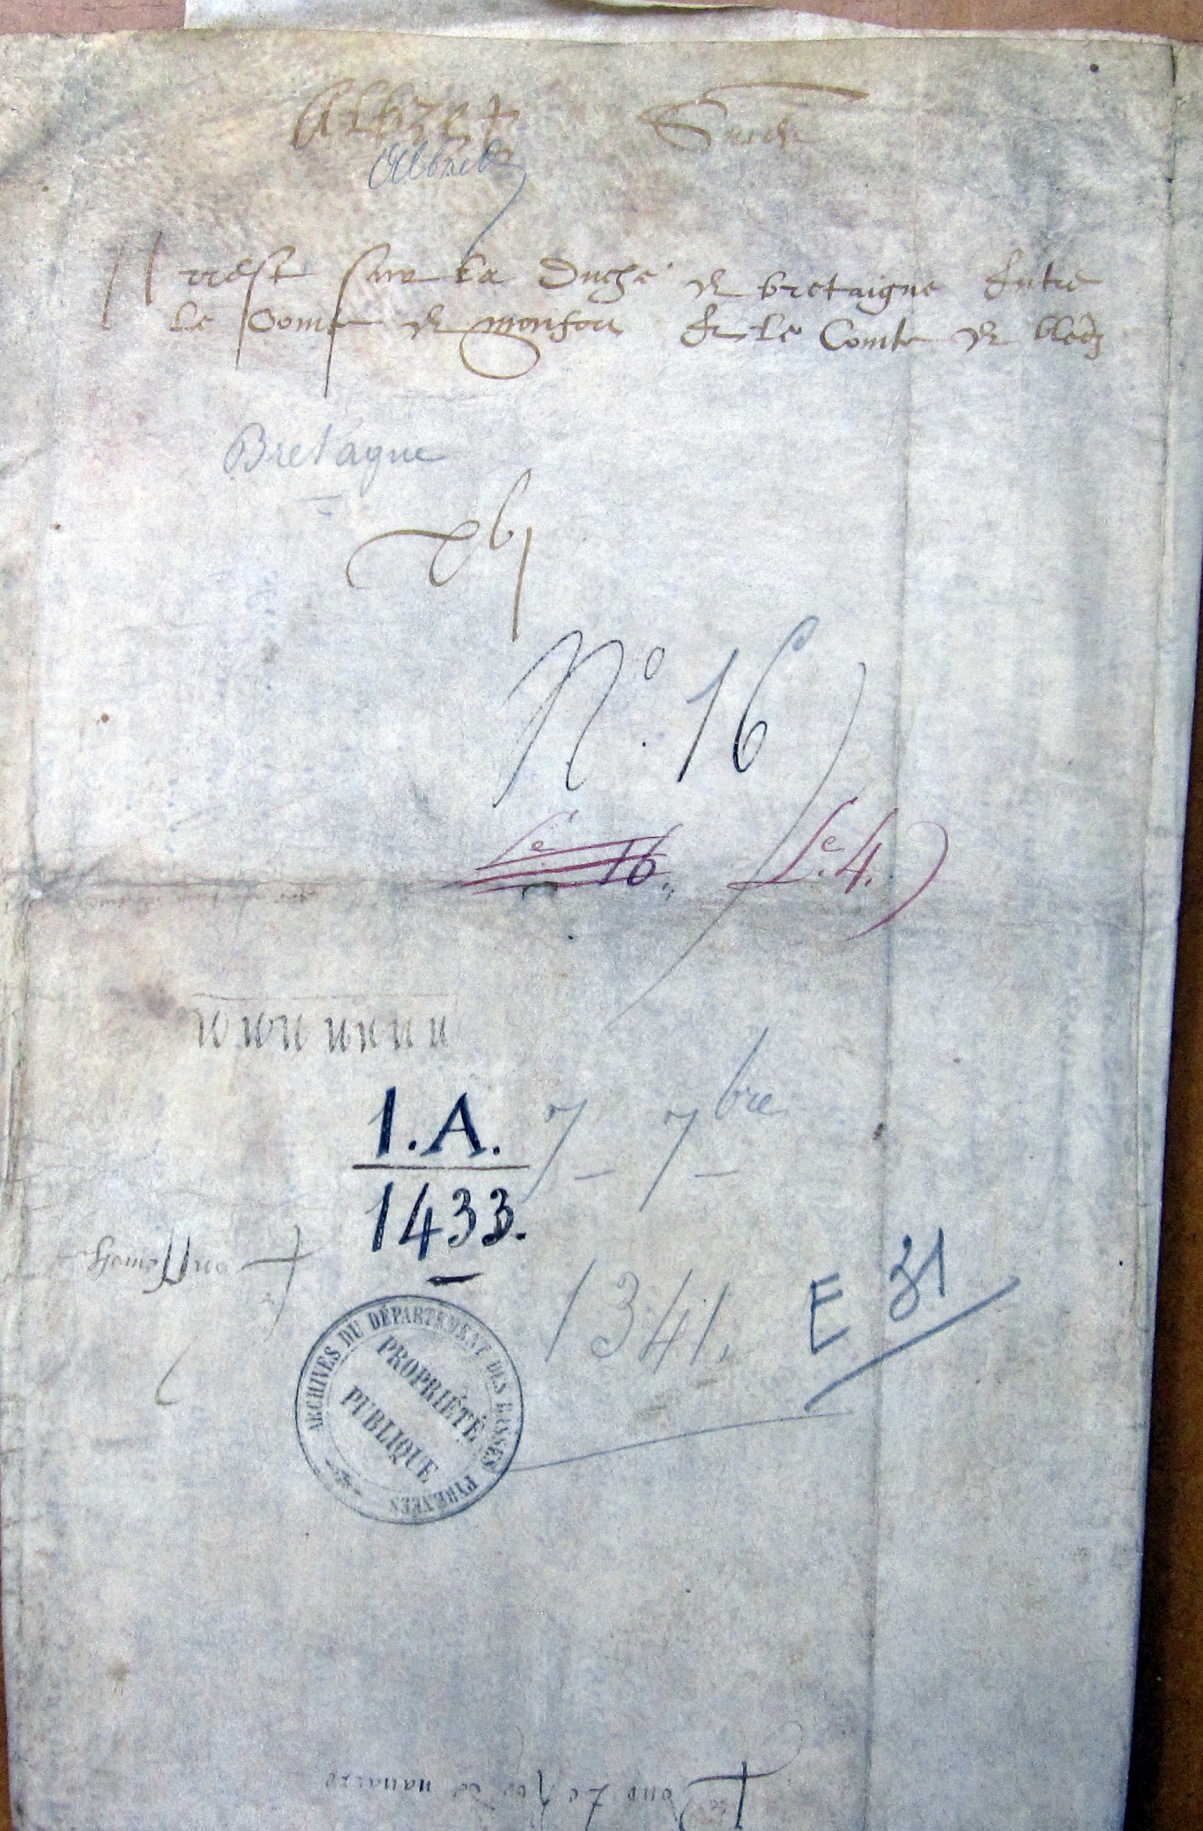 Albret
Albret
Arrest sur la Duche de bretaigne Entre
Le Comte de monfort Et Le Comte de bloys
Bretagne
xvj
N.º 16
Le 16.
Le. 4.
I.A.
1433.
7 7bre
1341.
E 31
ARCHIVES DU DÉPARTEMENT DES BASSES PYRÉNÉES
PROPRIÉTÉ
PUBLIQUE
Pour Le Roy de navarre